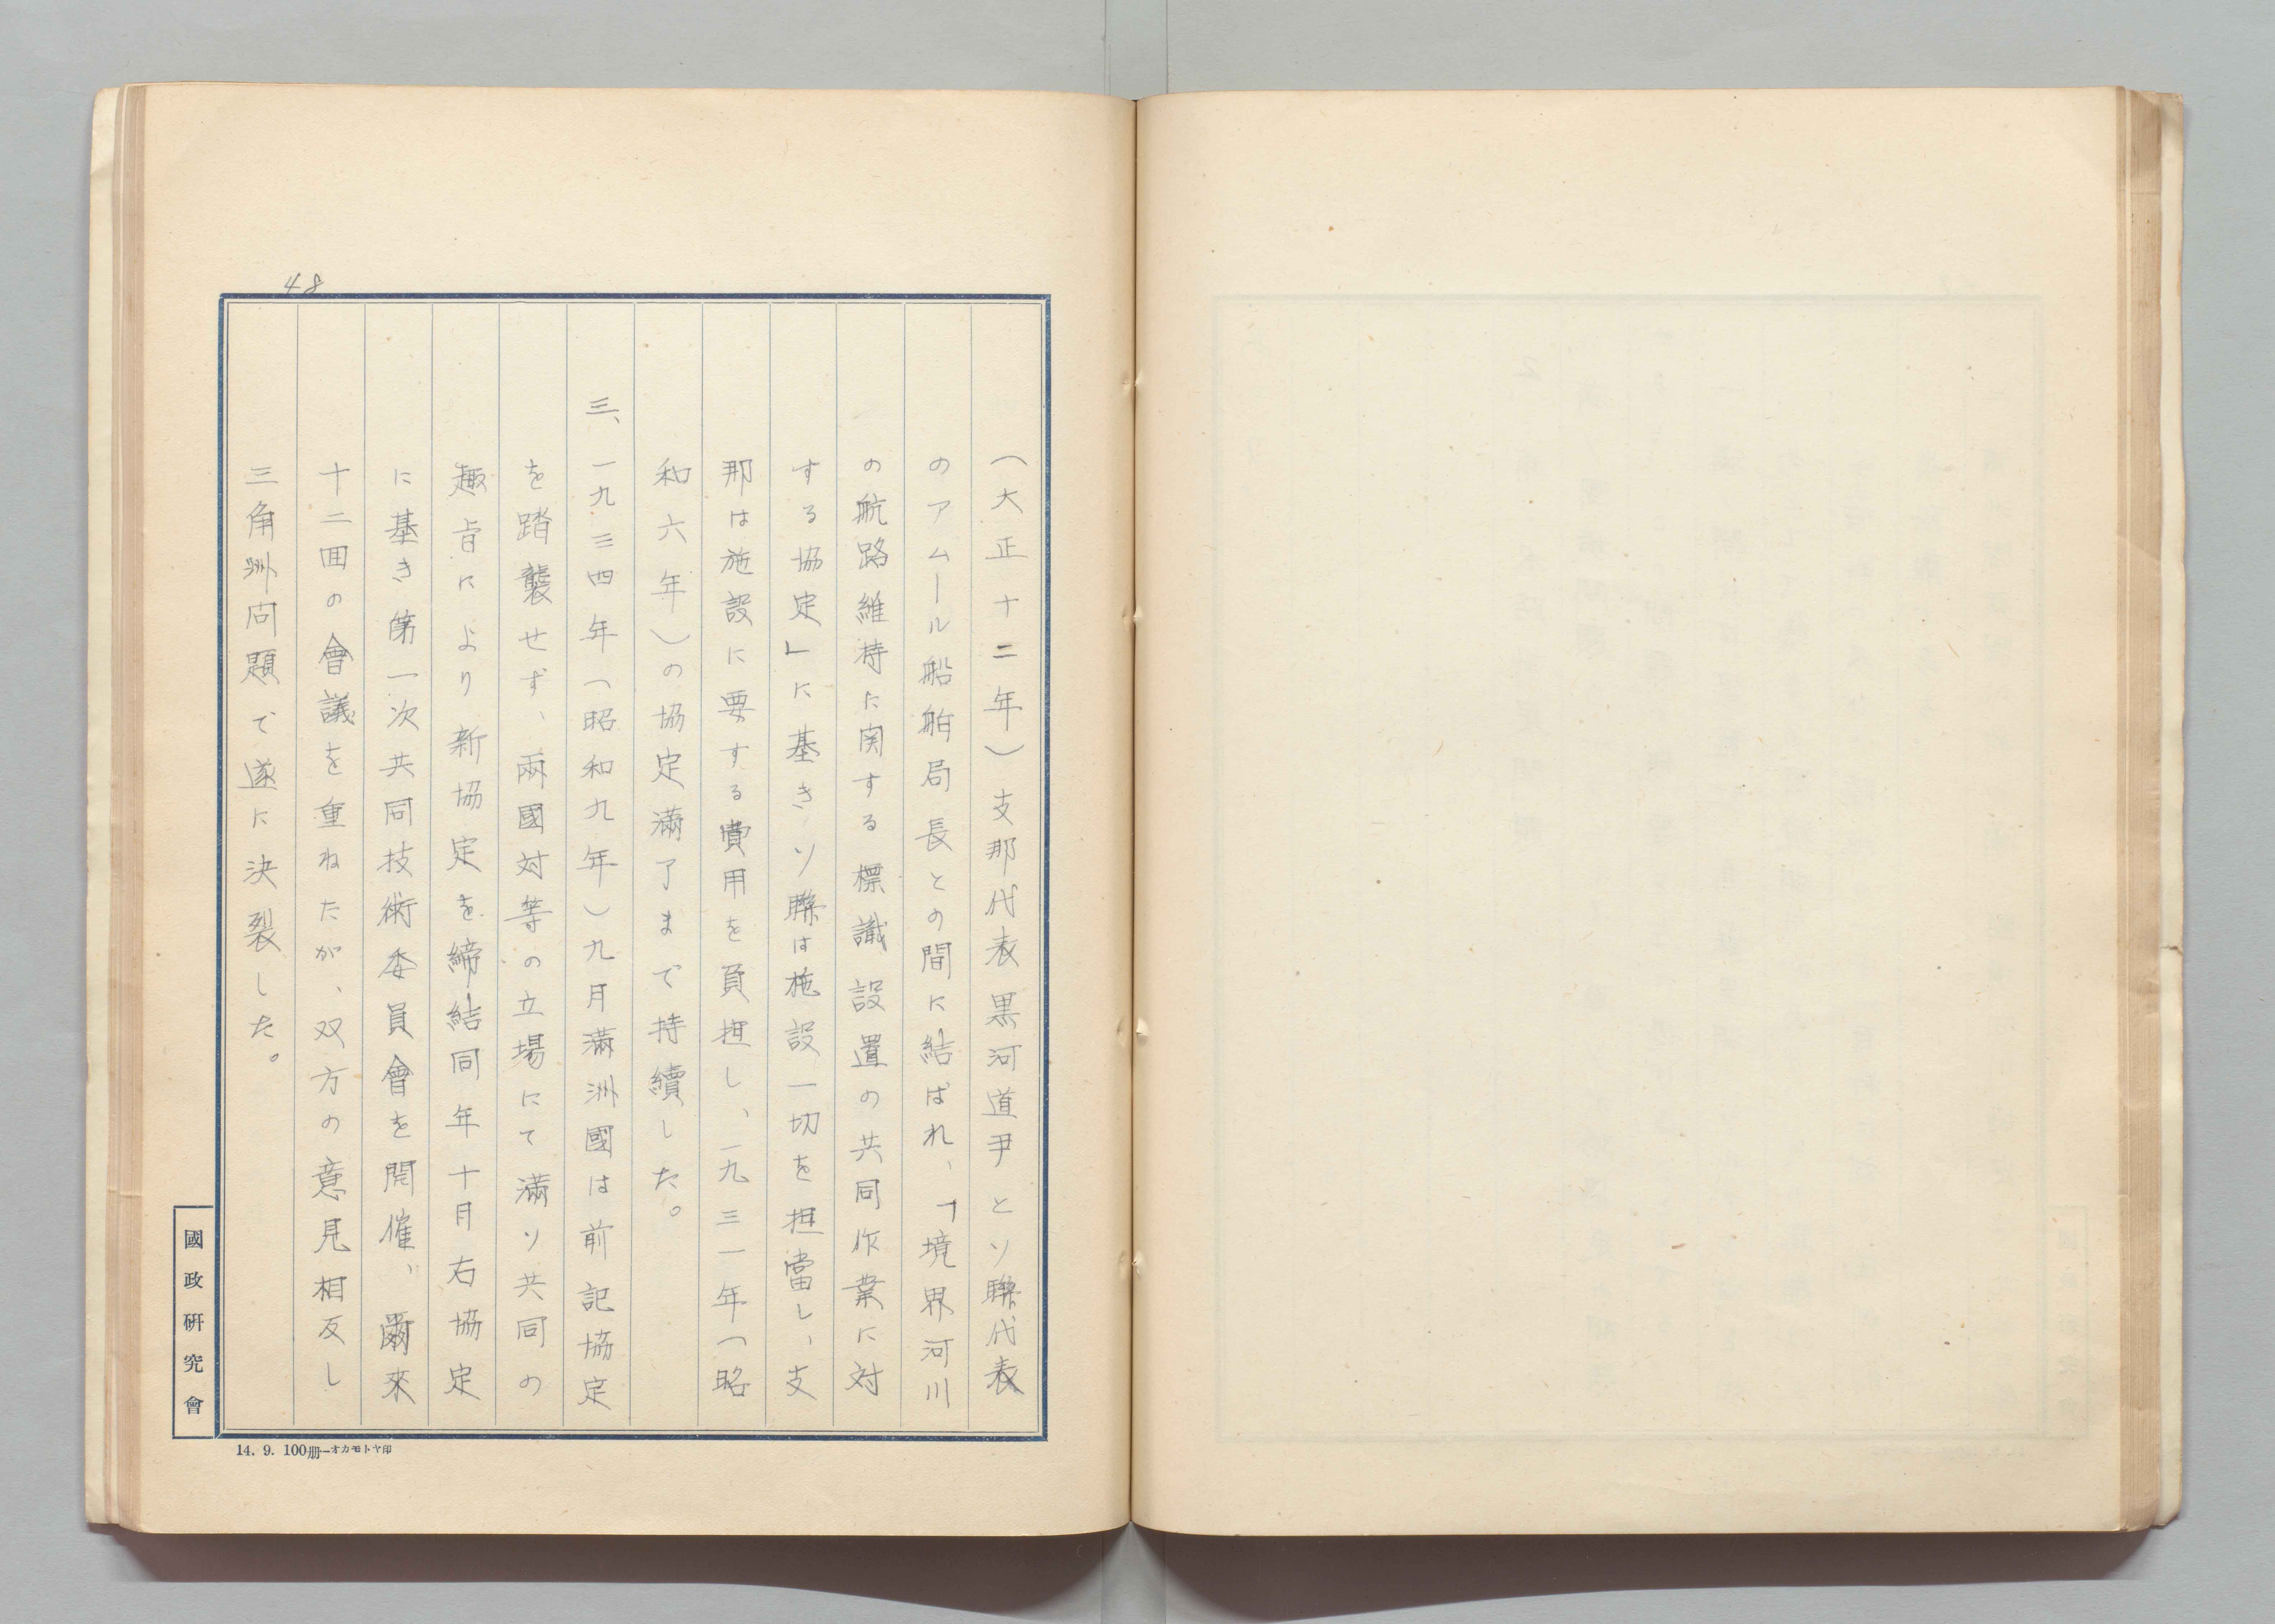 48
（大正十二年）支那代表黒河道尹とソ聯代表
のアムール船舶局長との間に結ばれ、「境界河川
の航路維持に関する標識設置の共同作業に対
する協定」に基きソ聯は施設一切を担當し、支
那は施設に要する費用を負担し、一九三一年（昭
和六年）の協定滿了まで持續した。
三、一九三四年（昭和九年）九月滿洲國は前記協定
を踏襲せず、兩國対等の立場にて滿ソ共同の
趣旨により新協定を締結同年十月右協定
に基き第一次共同技術委員會を開催、爾來
十二囬の會議を重ねたが、双方の意見相反し
三角洲问題で遂に決裂した。
國政研究會
14. 9. 100册—オカモトヤ印